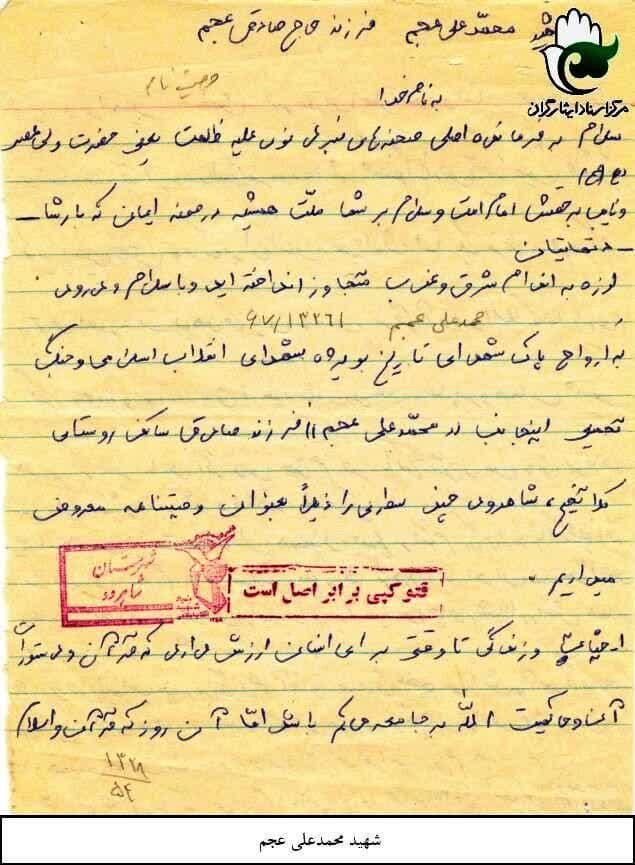 شهید محمدعلی عجم فرزند حاج صادق عجم
مرکز اسناد ایثارگران
وصیت نامه
به نام خدا
سلام به فرمانده اصلی صحنه‌های نبرد نور علیه ظلمت یعنی حضرت ولی عصر
(عج)
و نایب برحقش امام امت و سلام بر شما ملت همیشه در صحنه ایران که با رشا
دتهایتان
لرزه به اندام شرق و غرب متجاوز انداخته اید و با سلام و درود
محمدعلی عجم
به ارواح پاک شهدای تاریخ بویژه شهدای انقلاب اسلامی و جنگ
تحمیلی اینجانب محمدعلی عجم فرزند صادق ساکن روستای
شاهرود چند سطری را ذیلاً بعنوان وصیتنامه معروض
میداریم
شهرستان
شاهرود
فتوکپی برابر اصل است
و زندگی تا وقتی برای انسان ارزش دارد که قرآن و دستورات
آن و حاکیت الله بر جامعه حاکم باشد امّا آن روز که قرآن و اسلام
شهید محمدعلی عجم